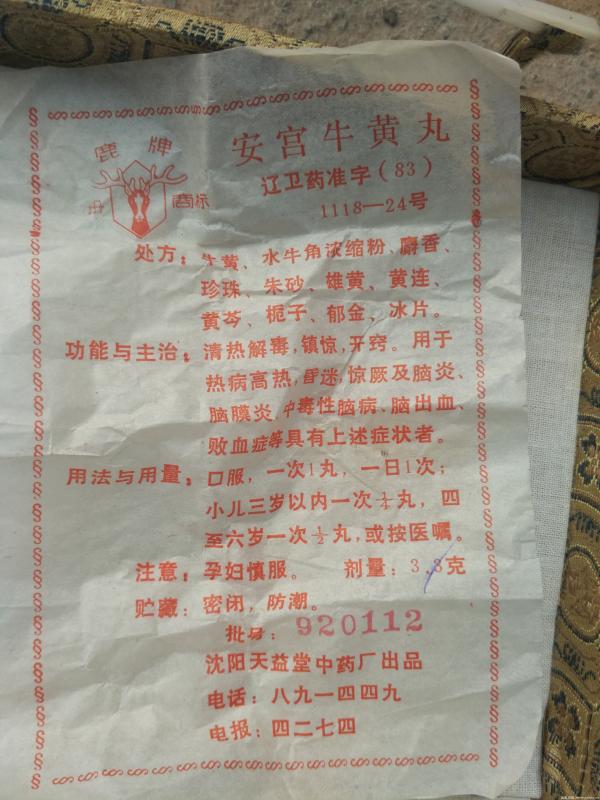 鹿牌
注册商标
安宫牛黄丸
辽卫药准字(83)
1118—24号
处方：牛黄、水牛角浓缩粉、麝香、
珍珠、朱砂、雄黄、黄连、
黄芩、栀子、郁金、冰片。
功能与主治：清热解毒，镇惊，开窍。用于
热病高热，昏迷，惊厥及脑炎、
脑膜炎、中毒性脑病、脑出血、
败血症等具有上述症状者。
用法与用量：口服，一次1丸，一日1次；
小儿三岁以内一次¼丸，四
至六岁一次½丸，或按医嘱。
注意：孕妇慎服。 剂量：3.3克
贮藏：密闭，防潮。
批号：920112
沈阳天益堂中药厂出品
电话：八九一四四九
电报：四二七四